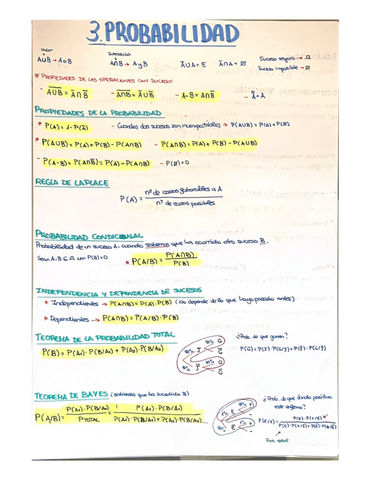 3. PROBABILIDAD
Unión Intersección
A∪B → A o B A∩B → A y B A̅∪A = E A̅∩A = ∅ Suceso seguro → Ω
Suceso imposible → ∅
* PROPIEDADES DE LAS OPERACIONES CON SUCESOS
- A̅∪̅B̅ = A̅∩B̅ - A̅∩̅B̅ = A̅∪B̅ - A-B = A∩B̅
PROPIEDADES DE LA PROBABILIDAD
* P(A) = 1-P(A̅) - Cuando dos sucesos son incompatibles → P(A∪B) = P(A)+P(B)
* P(A∪B) = P(A)+P(B)-P(A∩B) - P(A∩B) = P(A)+P(B)-P(A∪B)
- P(A-B) = P(A∩B̅) = P(A)-P(A∩B) - P(∅)=0
REGLA DE LAPLACE
P(A) = nº de casos favorables a A
nº de casos posibles
PROBABILIDAD CONDICIONAL
Probabilidad de un suceso A cuando sabemos que ha ocurrido otro suceso B.
Sean A,B ⊆ Ω con P(B)>0 * P(A/B) = P(A∩B)
P(B)
INDEPENDENCIA Y DEPENDENCIA DE SUCESOS
* Independientes → P(A∩B) = P(A)·P(B) (No depende de lo que haya pasado antes)
* Dependientes → P(A∩B) = P(A/B)·P(B)
TEOREMA DE LA PROBABILIDAD TOTAL
¿Prob. de que ganen?
P(B) = P(A₁)·P(B/A₁)+P(A₂)·P(B/A₂)
TEOREMA DE BAYES (sabiendo que ha sucedido B)
P(A/B) = P(A₁)·P(B/A₁)
P TOTAL
P(A₁)·P(B/A₁)
P(A₁)·P(B/A₁)+P(A₂)·P(B/A₂)...
Prob. total